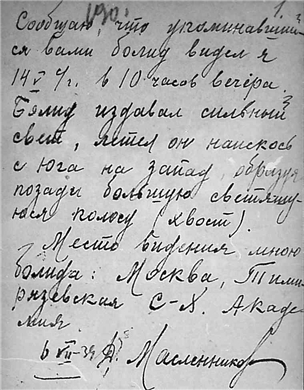 190. 1.
Сообщаю, что упоминавший
ся вами болид видел я
14 V с/г. в 10 часов вечера.
Болид издавал сильный
свет, летел он наискось
с юга на запад, образуя
позади большую светящу-
юся полосу (хвост).
Место видения мною
болида: Москва, Тими
рязевская С-Х. Акаде-
мия.
6 VII-34 Масленников